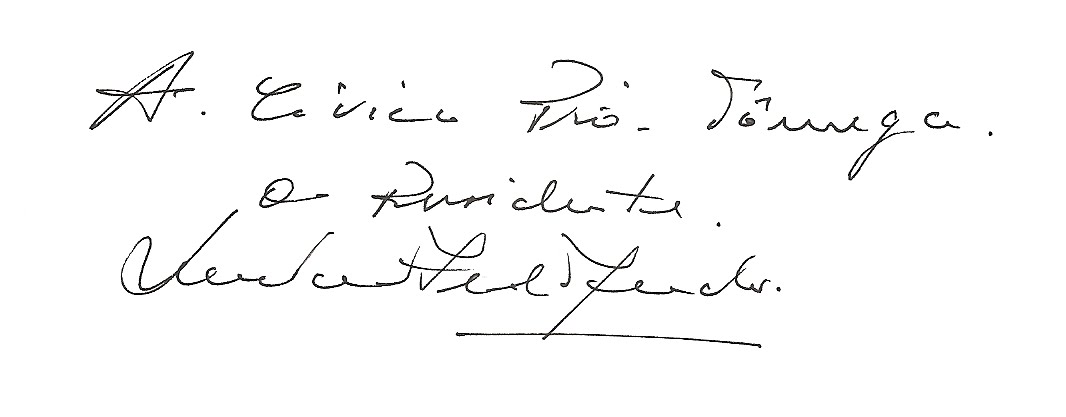 A. Cívica Pró-Tâmega.
O Presidente.